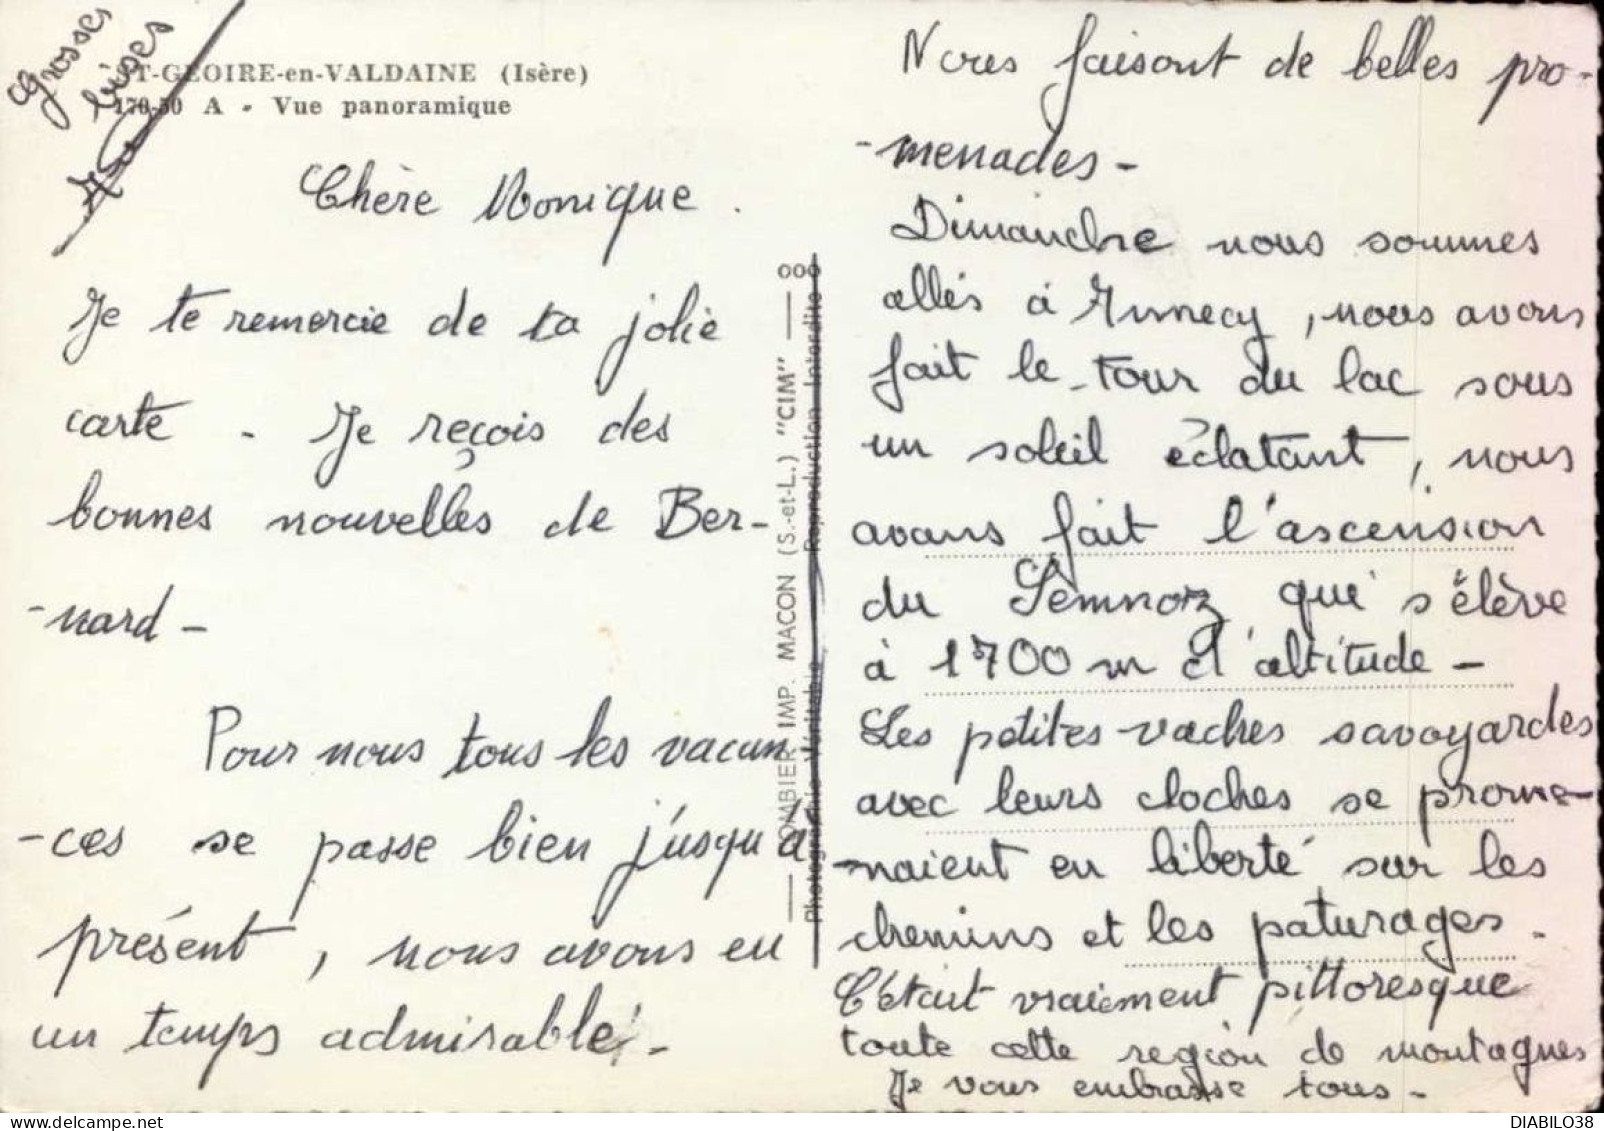 Grosses
bises
ST-GEOIRE-en-VALDAINE (Isère)
170-50 A - Vue panoramique
Chère Monique.
Je te remercie de ta jolie
carte - Je reçois des
bonnes nouvelles de Ber-
-nard -
Pour nous tous les vacan-
-ces se passe bien j'usqu'à
présent, nous avons eu
un temps admirable -
COMBIER IMP. MACON (S.-et-L.) "CIM"
Photographie Véritable Reproduction Interdite
Nous faisont de belles pro-
-menades -
Dimanche nous sommes
allés à Annecy, nous avons
fait le tour du lac sous
un soleil éclatant, nous
avons fait l'ascension
du Semnoz qui s'élève
à 1700 m d'altitude -
Les petites vaches savoyardes
avec leurs cloches se prome-
-naient en liberté sur les
chemins et les paturages.
C'était vraiement pittoresque
toute cette région de montagnes
Je vous embrasse tous -
DIABILO38